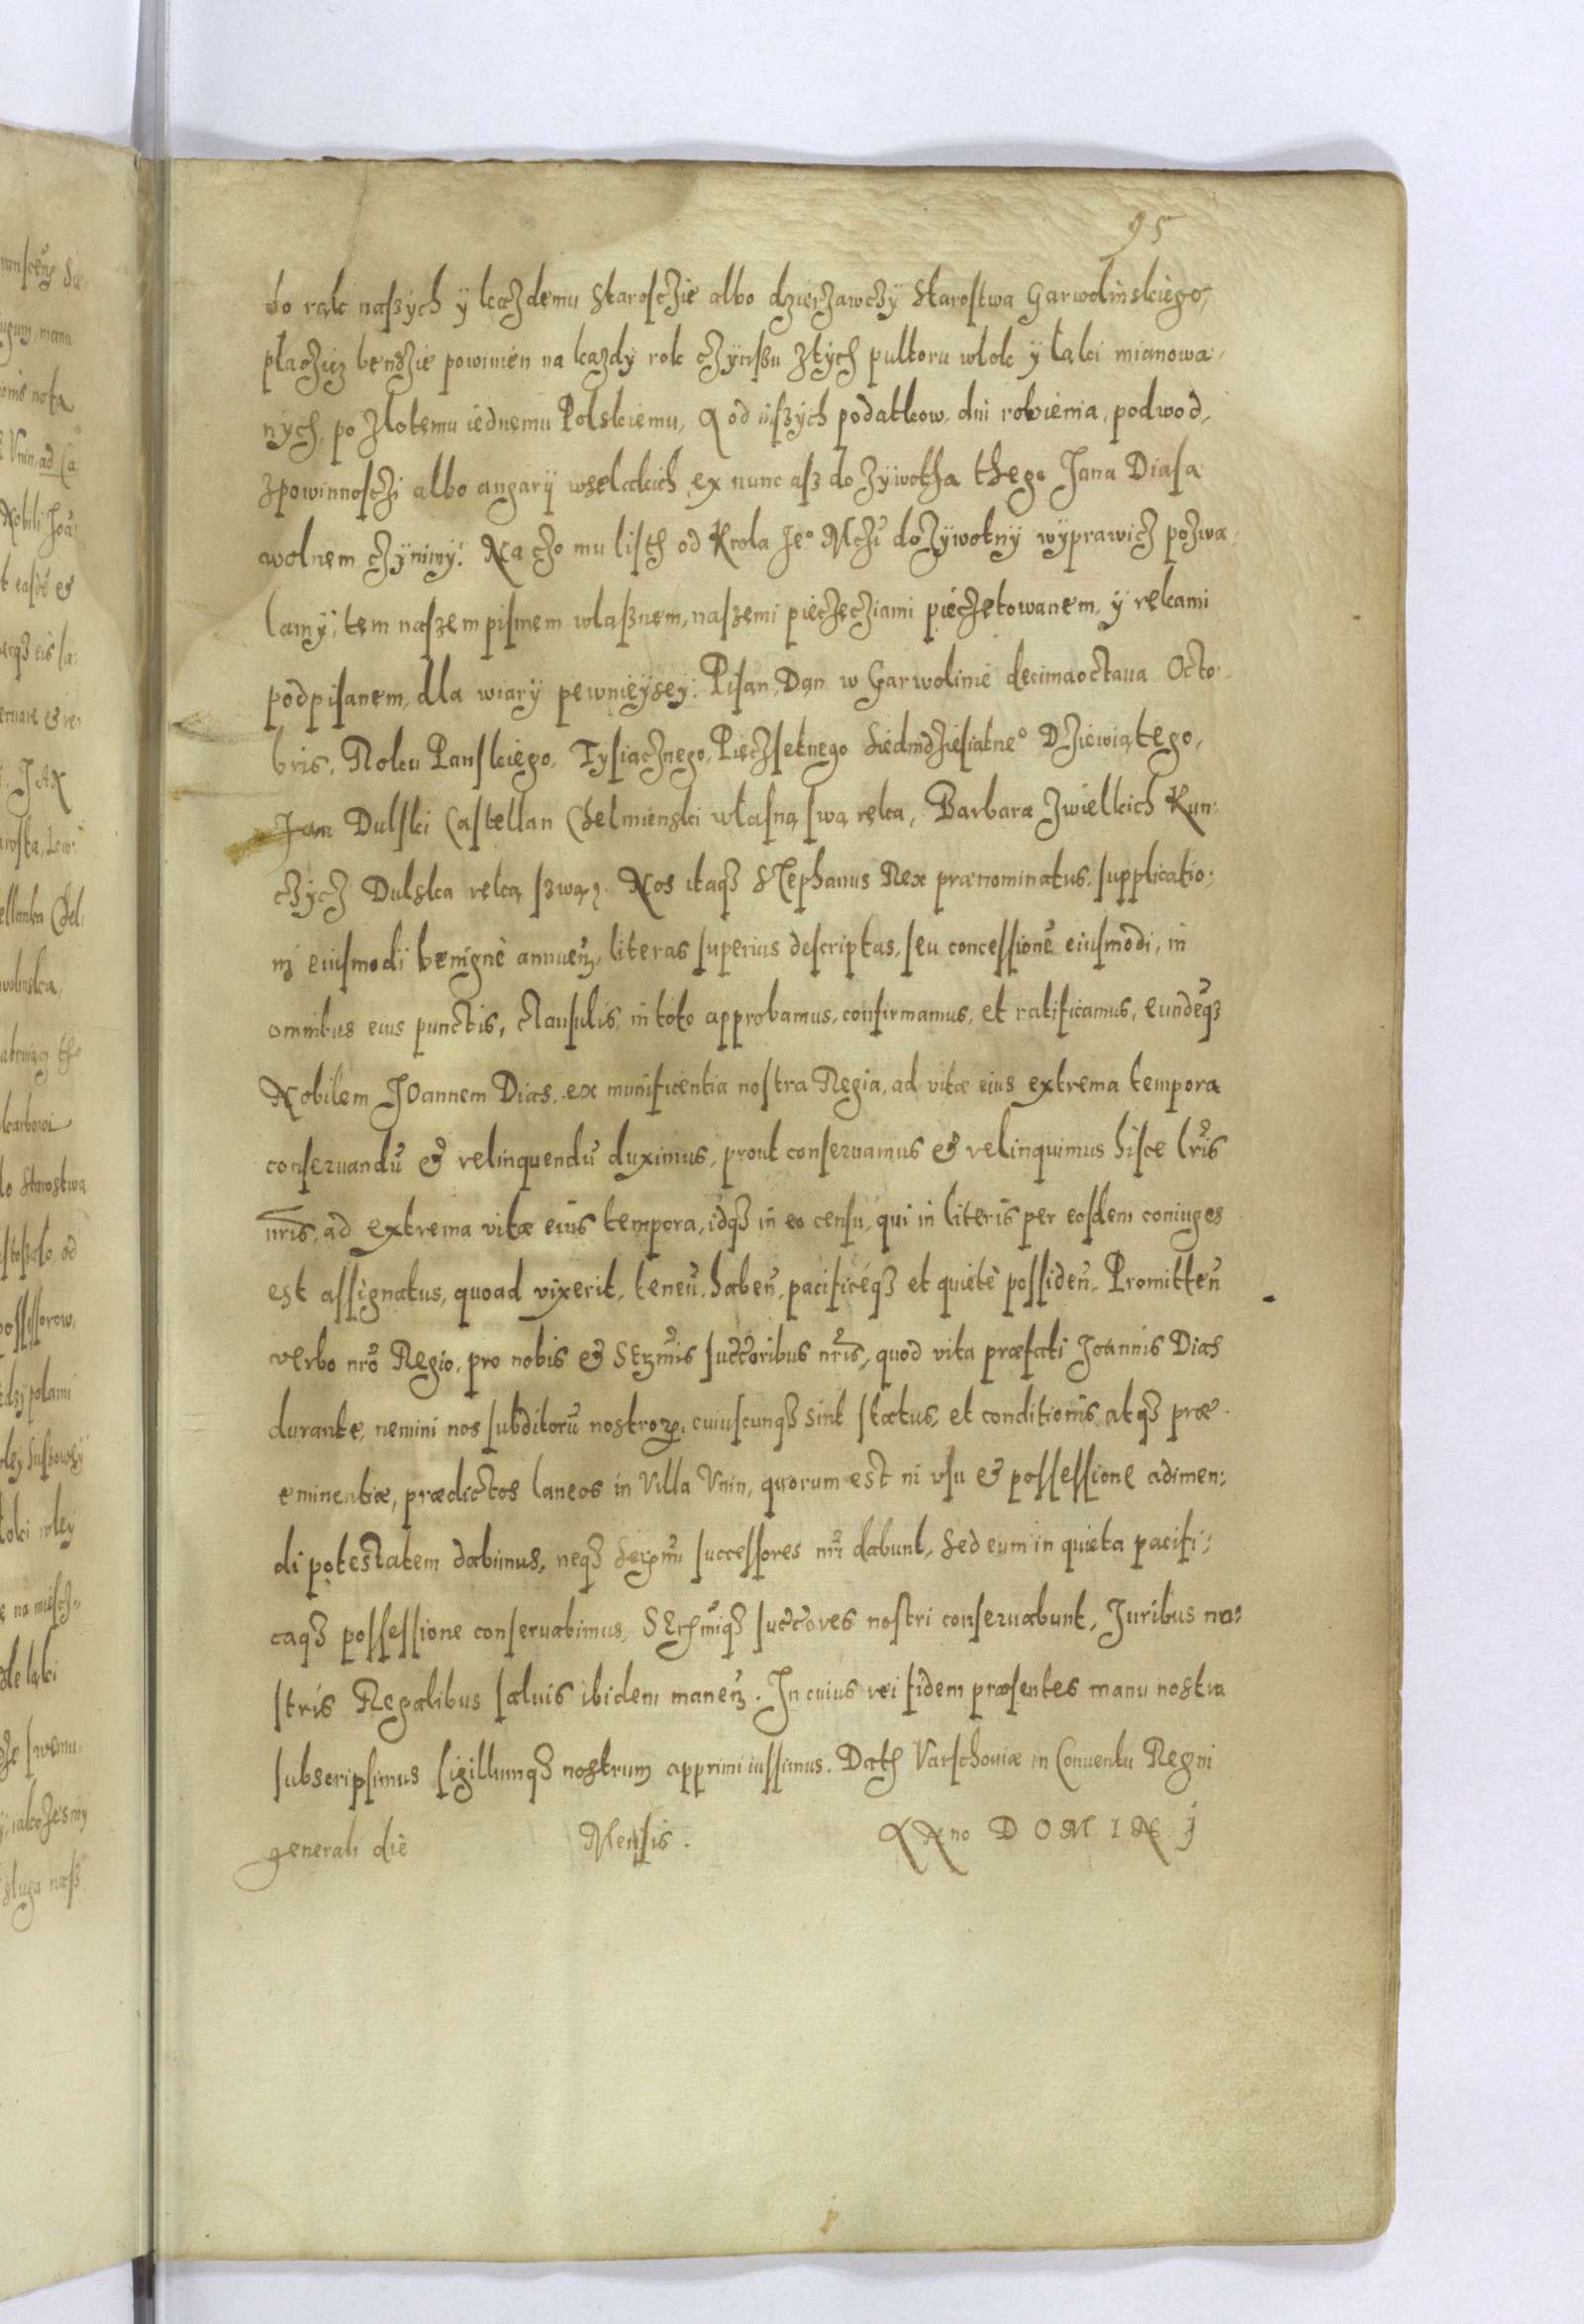 95
do rąk naszých ý kaȝdemu Starosciȝie albo dzierȝawcȝý Starostwa Garwolinskiego,
płacȝicȝ bendȝie powinien na kaȝdý rok cȝýnszu ȝtých pultoru włok ý łąki mianowa,
ných, po ȝlotemu iednemu Polskiemu, A od iszých podatkow, dni robienia, podwod,
ȝpowinnoscȝi albo angarý wselakich ex nunc asz do ȝywotha thego Jana Diasa
wolnem cȝýnimý: Na cȝo mu listh od Krola Jeº Mcȝi doȝywotný wýprawicȝ poȝwa,
lamý, tem naszem pismem własznem, naszemi pieczȩcȝiami piecȝetowanem, ý rekami
podpisanem, dla wiarý pewnieýseý: Pisan, Dan w Garwolinie decimaoctaua Octo,
bris, Roku Panskiego, Tysiącȝnego, Piecȝsetnego Siedmdȝiesiatneº Dȝiewiątego,
Jan Dulski Castellan Chelmienski własną swą ręką, Barbara ȝwielkich Kun:
cȝýcȝ Dulska reką szwąȝ. Nos itaqȝ Stephanus Rex prænominatus, supplicatio:
ni eiusmodi benignè annueñ, literas superius descriptas, seu concessionẽ eiusmodi, in
omnibus eius punctis, clausulis, in toto approbamus, confirmamus, et ratificamus, eundẽqȝ
Nobilem Joannem Dias, ex munificentia nostra Regia, ad vitæ eius extrema tempora
conseruandũ & relinquendũ duximus, prout conseruamus & relinquimus hisce lr̃is
nr̃is, ad extrema vitæ eius tempora, idqȝ in eo censu, qui in literis per eosdem coniuges
est assignatus, quoad vixerit, teneñ, habeñ, pacificéqȝ et quietè possideñ, Promitteñ
verbo nr̃o Regio, pro nobis & Serm̃is succ̃oribus nr̃is, quod vita præfati Joannis Dias
durante, nemini nos subditorũ nostroꝝ, cuiuscunqȝ sint status, et conditionis atqȝ præ
eminentiæ, prædictos laneos in Villa Vnin, quorum est in vsu & possessione adimen:
di potestatem dabimus, neqȝ Serm̃i successores nr̃i dabunt, Sed eum in quieta pacifi:
caqȝ possessione conseruabimus, SEr̃miqȝ succ̃ores nostri conseruabunt, Juribus no:
stris Regalibus saluis ibidem maneñ. In cuius rei fidem præsentes manu nostra
subscripsimus sigillumqȝ nostrum apprimi iussimus. Dat Varschouiæ in Conuentu Regni
generali die Mensis. ANno DOMINJ